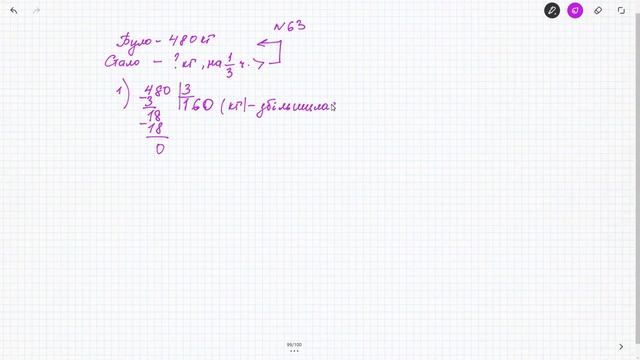 №63
Було - 480 кг
Стало - ? кг, на 1/3 ч. >
1) 480 | 3
- 3 | 160 (кг) - збільшилас
18
- 18
0
99/100